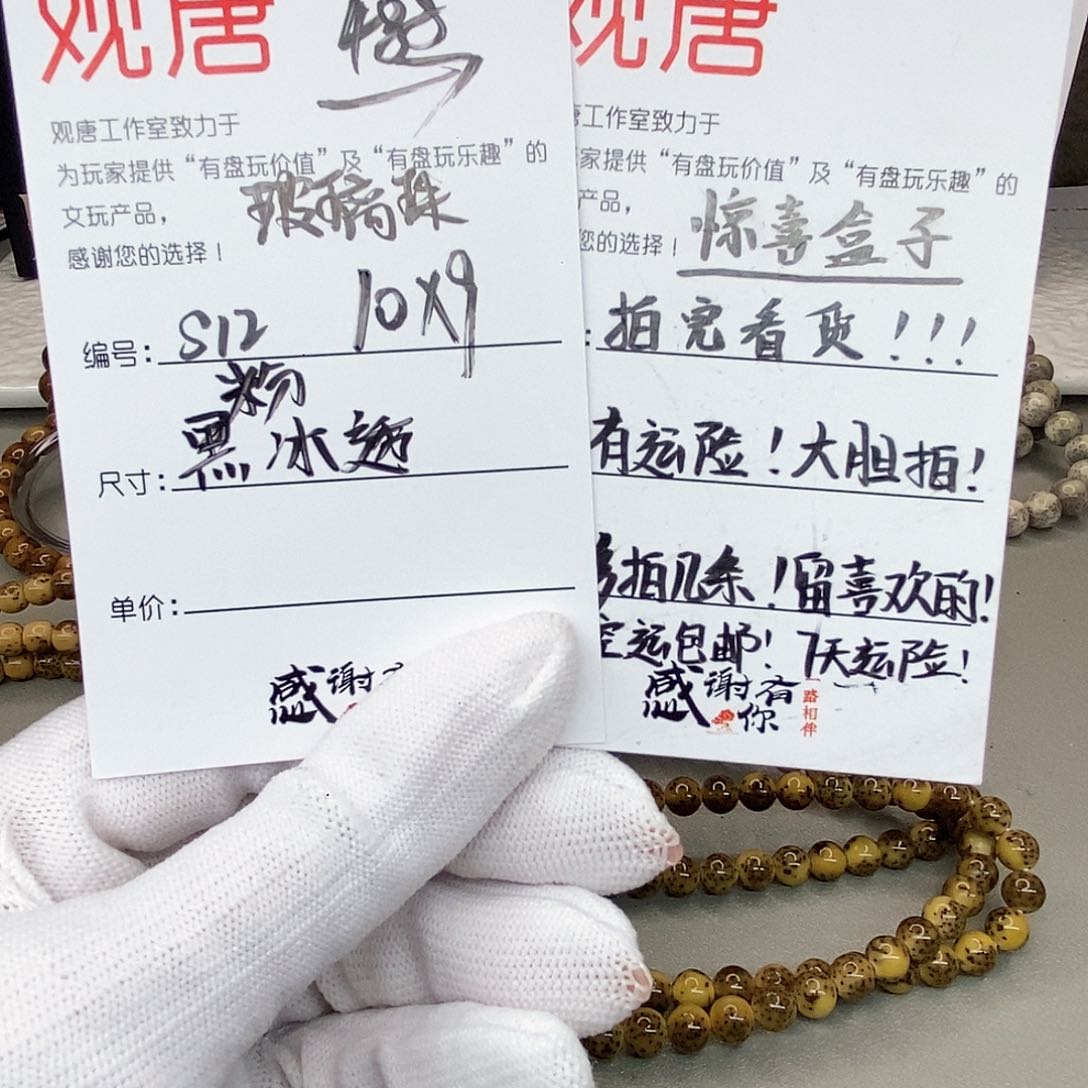 观唐
观唐工作室致力于
为玩家提供“有盘玩价值”及“有盘玩乐趣”的
文玩产品，
玻璃珠
感谢您的选择！
编号：S12 10X9
粉
尺寸：黑冰透
单价：
感谢
观唐
工作室致力于
家提供“有盘玩价值”及“有盘玩乐趣”的
产品，
惊喜盒子
您的选择！
：拍完看货！！！
有运险！大胆拍！
多拍几条！留喜欢的！
空运包邮！7天运险！
感谢有你
一路相伴